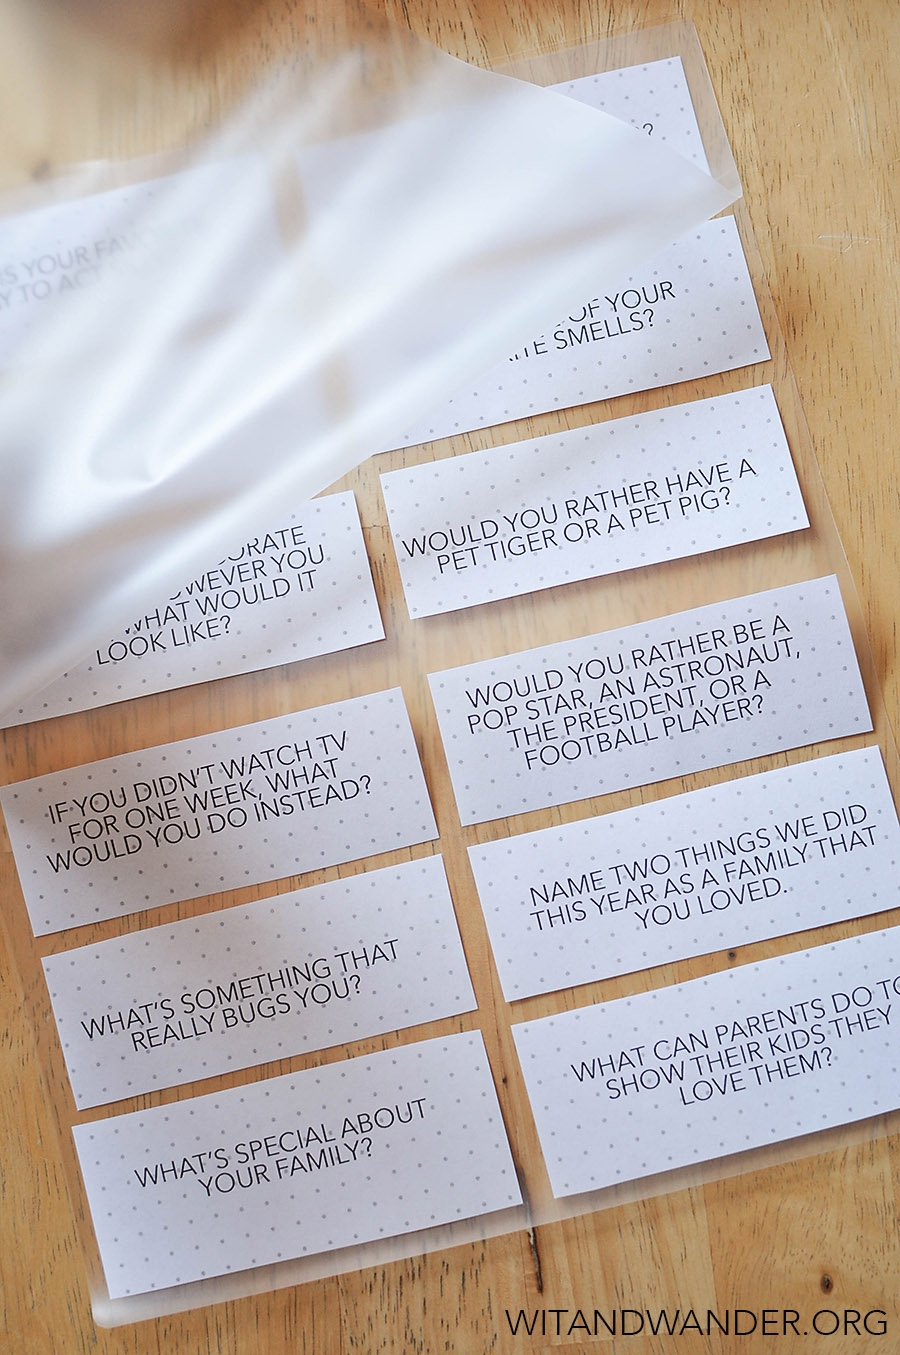 ?
YOUR FAVORITE
TO ACT
OF YOUR
SMELLS?
WOULD YOU RATHER HAVE A
PET TIGER OR A PET PIG?
YOU
WHAT WOULD IT
LOOK LIKE?
WOULD YOU RATHER BE A
POP STAR, AN ASTRONAUT,
THE PRESIDENT, OR A
FOOTBALL PLAYER?
IF YOU DIDN'T WATCH TV
FOR ONE WEEK, WHAT
WOULD YOU DO INSTEAD?
NAME TWO THINGS WE DID
THIS YEAR AS A FAMILY THAT
YOU LOVED.
WHAT'S SOMETHING THAT
REALLY BUGS YOU?
WHAT CAN PARENTS DO TO
SHOW THEIR KIDS THEY
LOVE THEM?
WHAT'S SPECIAL ABOUT
YOUR FAMILY?
WITANDWANDER.ORG